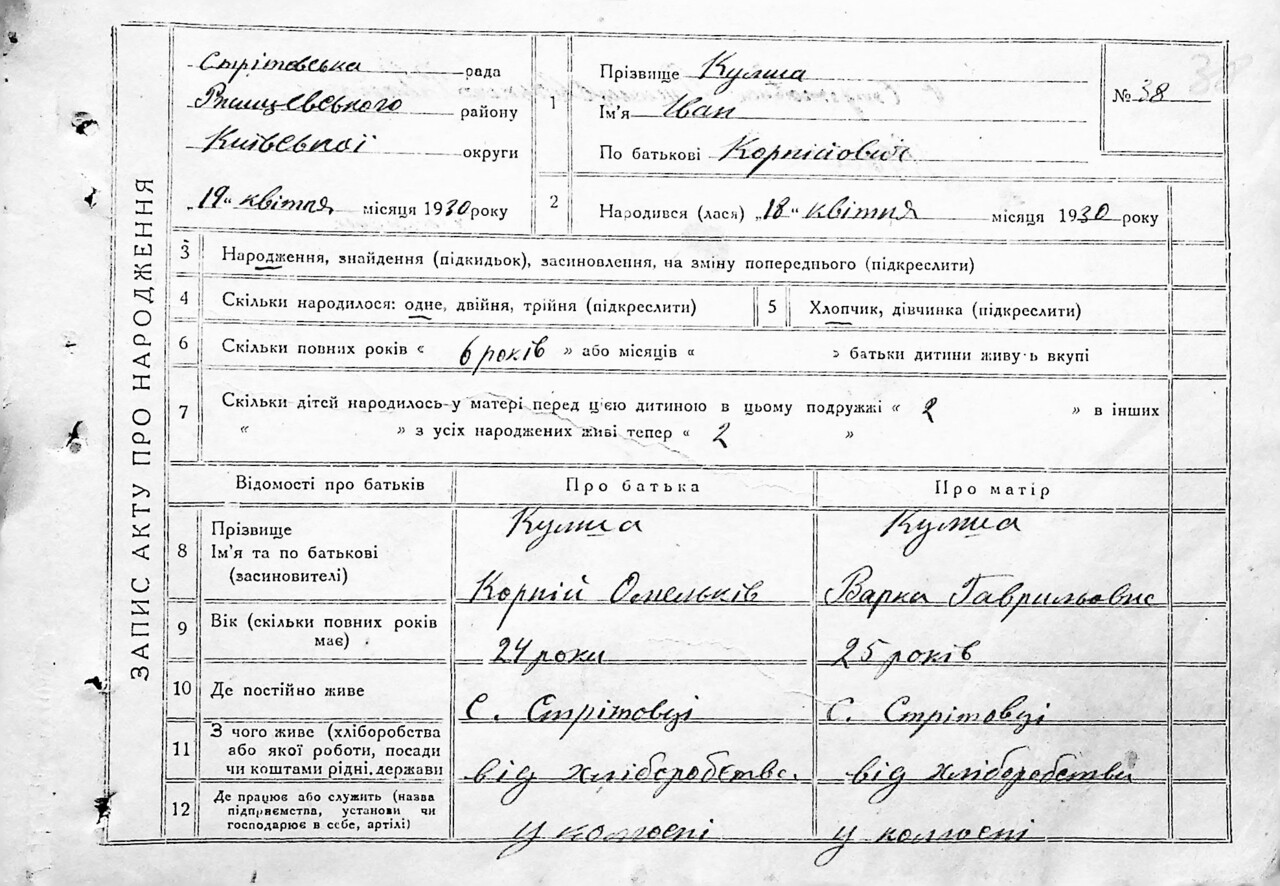 ЗАПИС АКТУ ПРО НАРОДЖЕННЯ
Стрітовська рада
району
Київської округи
„19" квітня місяця 1930 року
1
Прізвище Кулиша
Ім'я Іван
По батькові Корнійович
№ 38
2
Народився (лася) „18" квітня місяця 1930 року
3 Народження, знайдення (підкидьок), засиновлення, на зміну попереднього (підкреслити)
4 Скільки народилося: одне, двійня, трійня (підкреслити)
5 Хлопчик, дівчинка (підкреслити)
6 Скільки повних років « 6 років » або місяців « » батьки дитини живу ь вкупі
7 Скільки дітей народилось у матері перед цією дитиною в цьому подружжі « 2 » в інших
« » з усіх народжених живі тепер « 2 »
Відомості про батьків Про батька Про матір
8
Прізвище Кулиша Кулиша
Ім'я та по батькові
(засиновителі) Корній Омельків Варка Гаврильовна
9 Вік (скільки повних років
має) 24 роки 25 років
10 Де постійно живе С. Стрітовці С. Стрітовці
11
З чого живе (хліборобства
або якої роботи, посади
чи коштами рідні, держави від хліборобства від хліборобства
12
Де працює або служить (назва
підприємства, установи чи
господарює в себе, артілі) у колгоспі у колгоспі